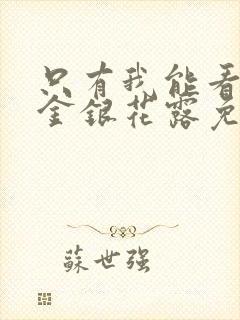 只有我能看
金銀花露免
蘇世强